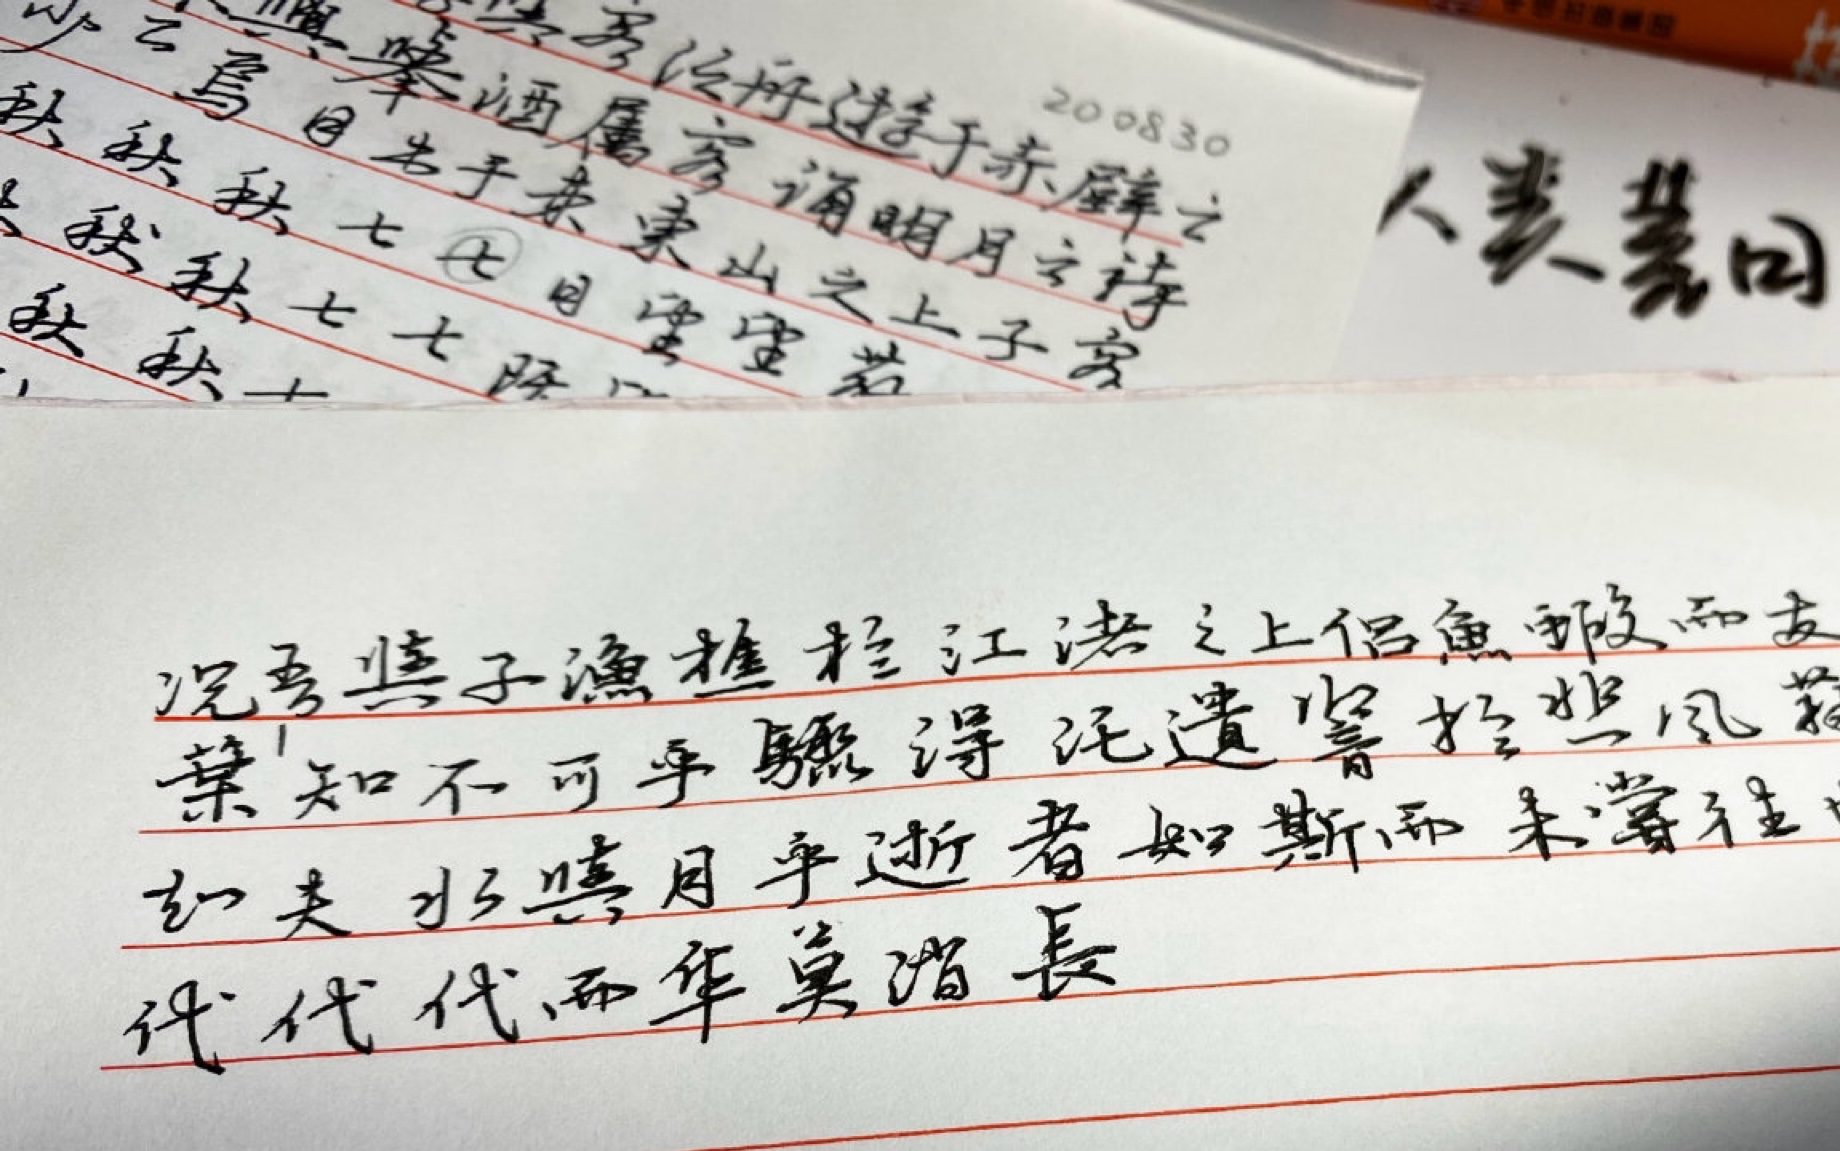 與客泛所遊于赤壁之
舉酒屬客誦明月之詩
焉月出于東東山之上于客
秋秋秋七七月望望蘇
秋秋七七既
秋秋七
200830
人类基因
况吾與子漁樵於江渚之上侣魚蝦而友
葉知不可乎驟得托遺響於悲風蘇
知夫水與月乎逝者如斯而未嘗往也
代代代而卒莫消長